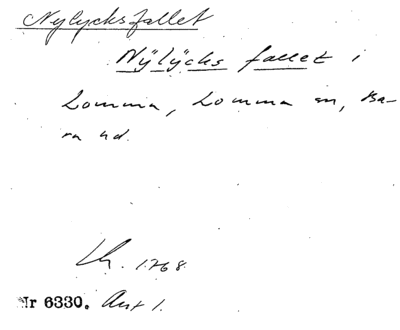 Nylycksfallet
Nÿlÿcks fallet i
Lomma, Lomma sn, Ba-
ra hd.
Lh. 1768
Nr 6330. Akt 1.